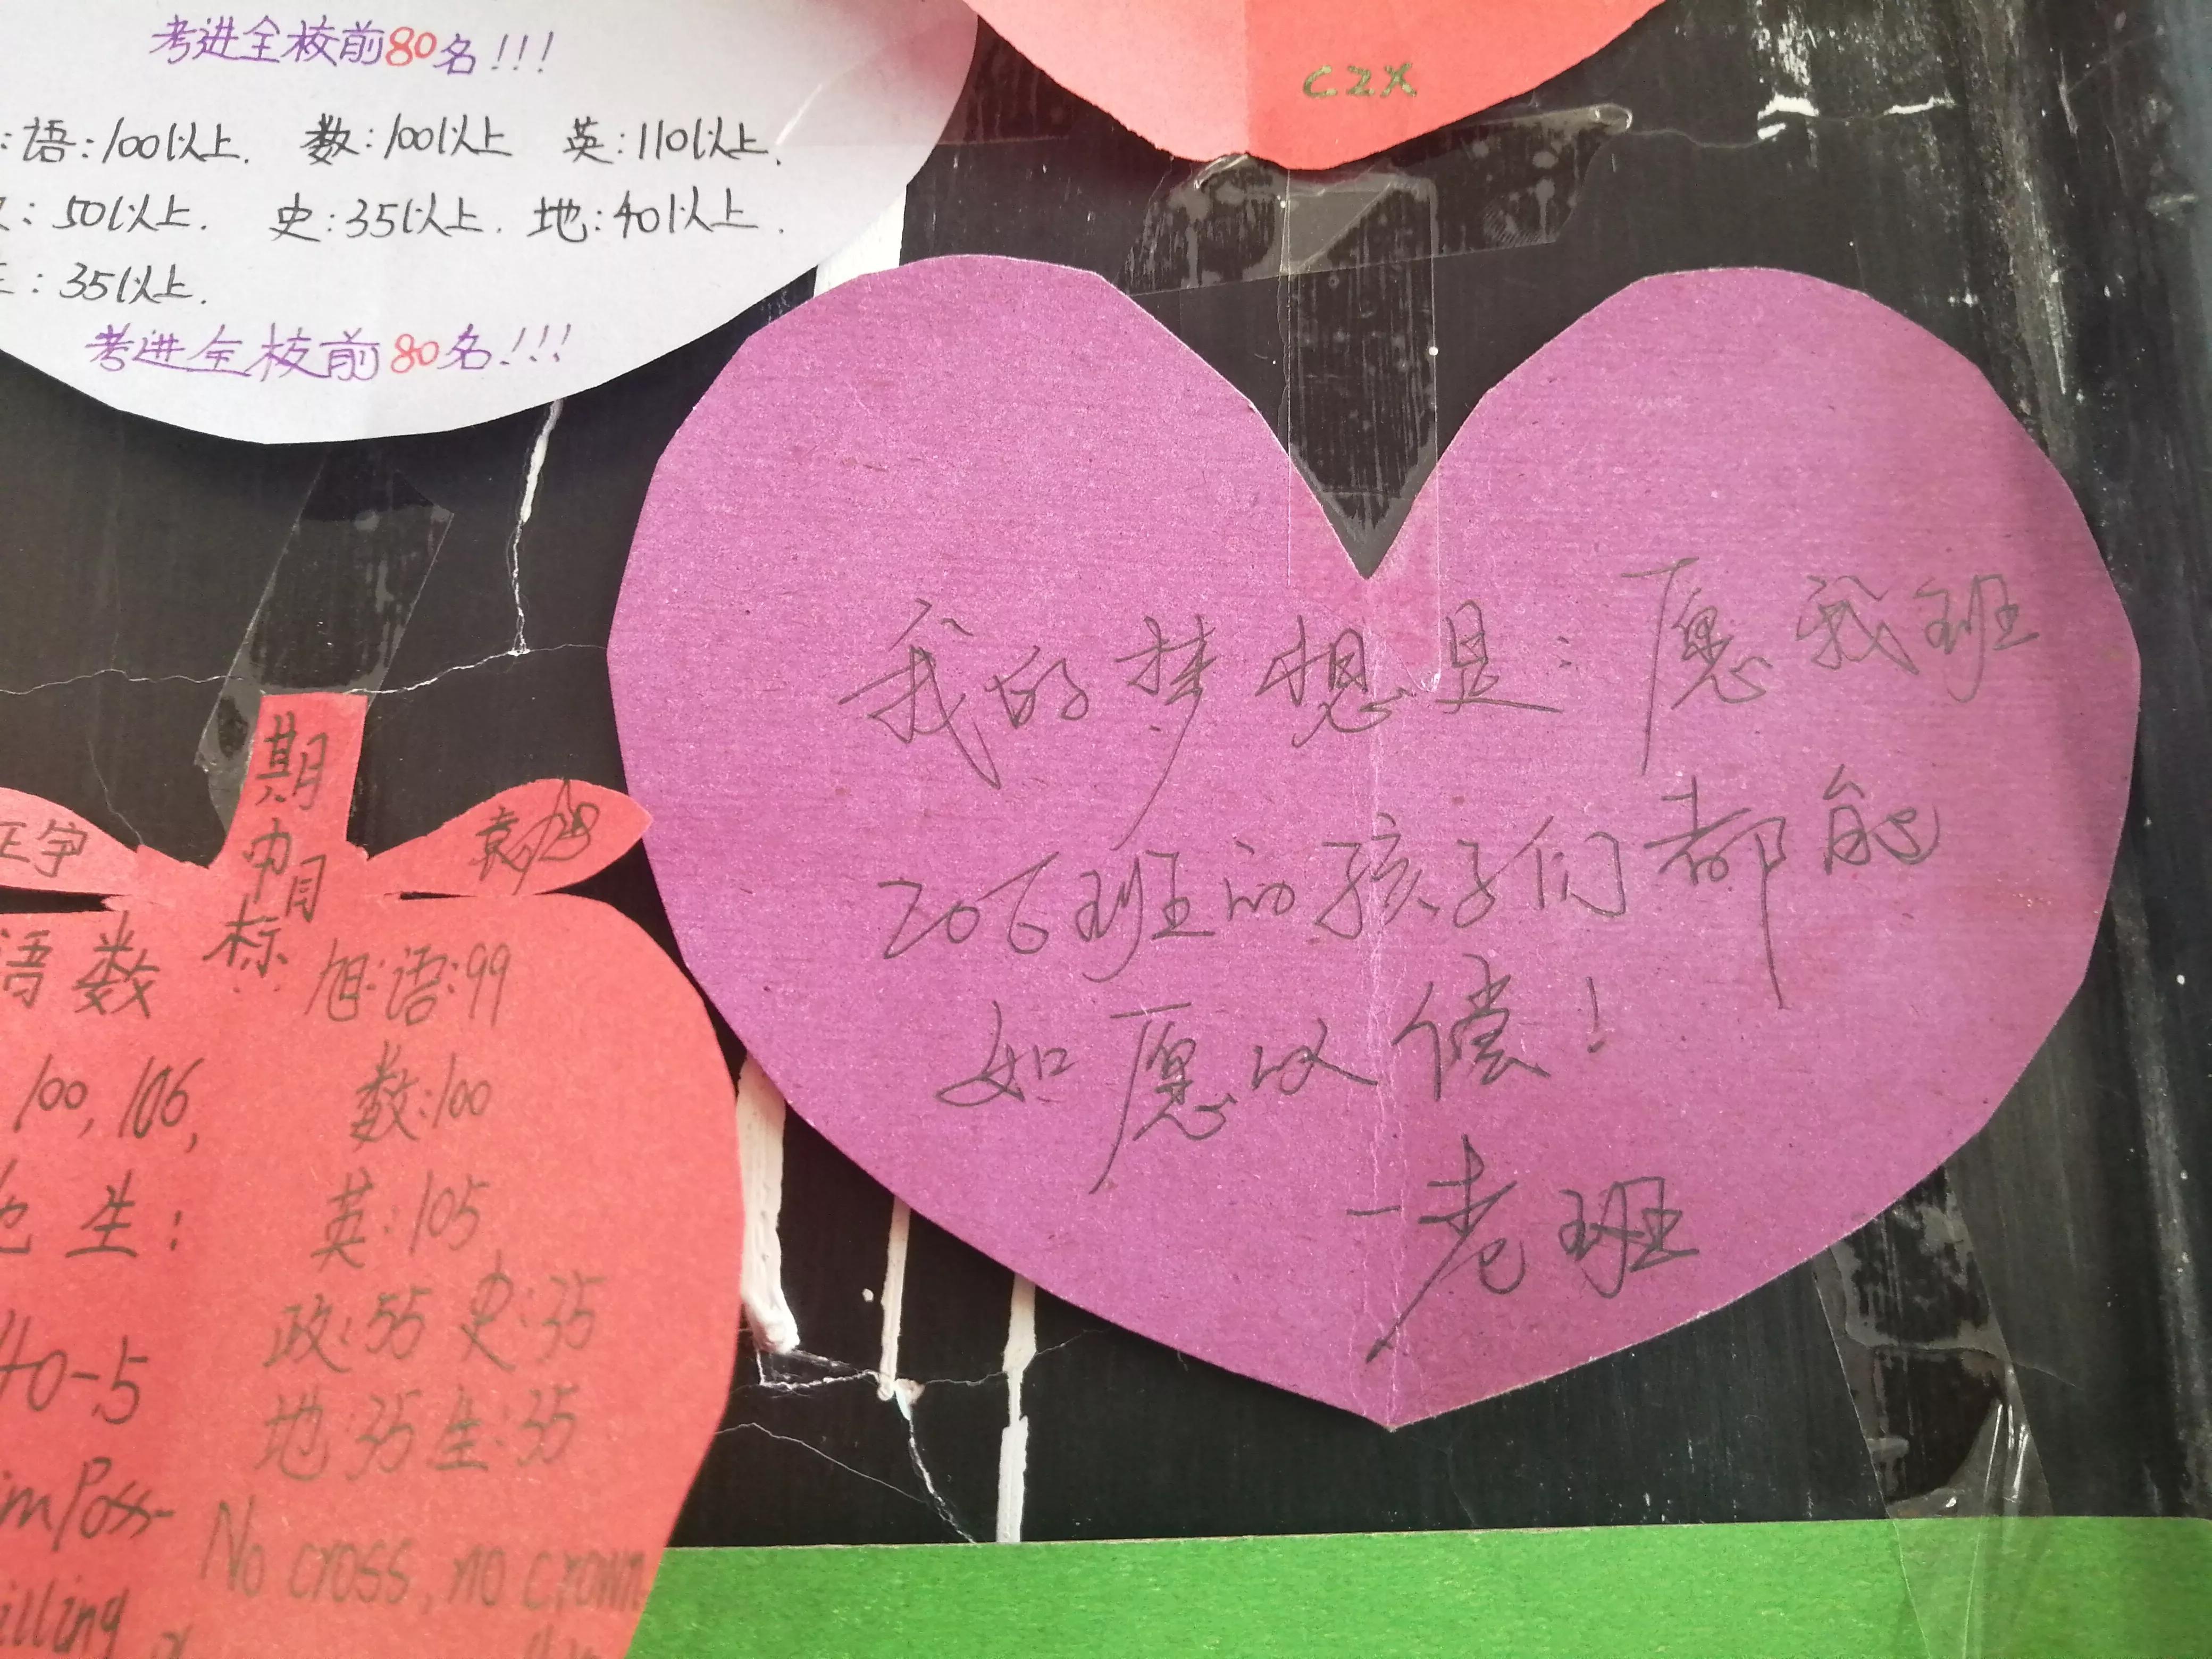 考进全校前80名!!!
:语:100以上. 数:100以上 英:110以上.
:50以上. 史:35以上. 地:40以上.
:35以上.
考进全校前80名!!!
CZX
我的梦想是:愿我班
206班的孩子们都能
如愿以偿!
-老班
期中目标
正宇
袁旭
语数
100,106,
生:
40-5
imposs-
illing
旭:语:99
数:100
英:105
政:55 史:35
地:35 生:35
No cross, no crown.